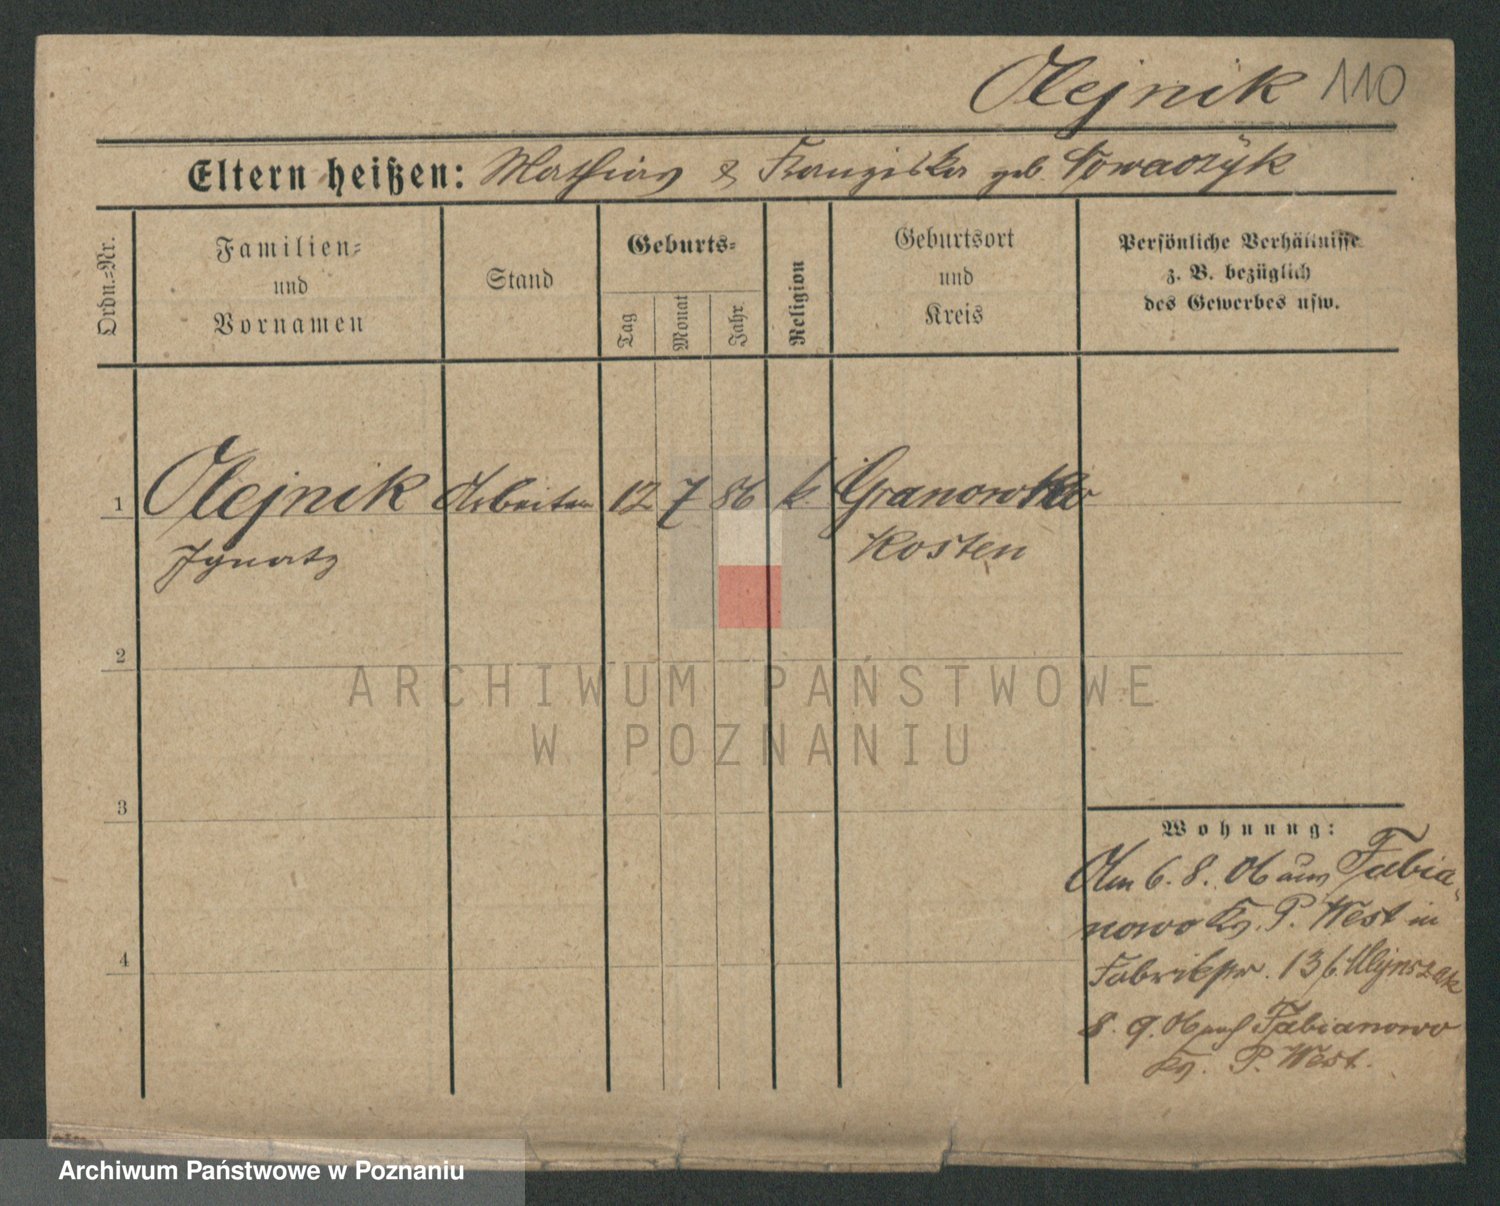 Olejnik 110
Eltern heißen: Mathias & Franziska geb. Nowaczyk
Ordn.=Nr.
Familien=
und
Vornamen
Stand
Geburts=
Tag
Monat
Jahr
Religion
Geburtsort
und
Kreis
Persönliche Verhältnisse
z. B. bezüglich
des Gewerbes usw.
1 Olejnik Arbeiter 12 7 86 k. Granowko
Ignatz Kosten
2
3
4
Wohnung:
Am 6. 8. 06 aus Fabia-
nowo Kr. P. West in
Fabrikstr. 13 b. Mlynszak
8. 9. 06 nach Fabianowo
Kr. P. West.
ARCHIWUM PAŃSTWOWE
W POZNANIU
Archiwum Państwowe w Poznaniu